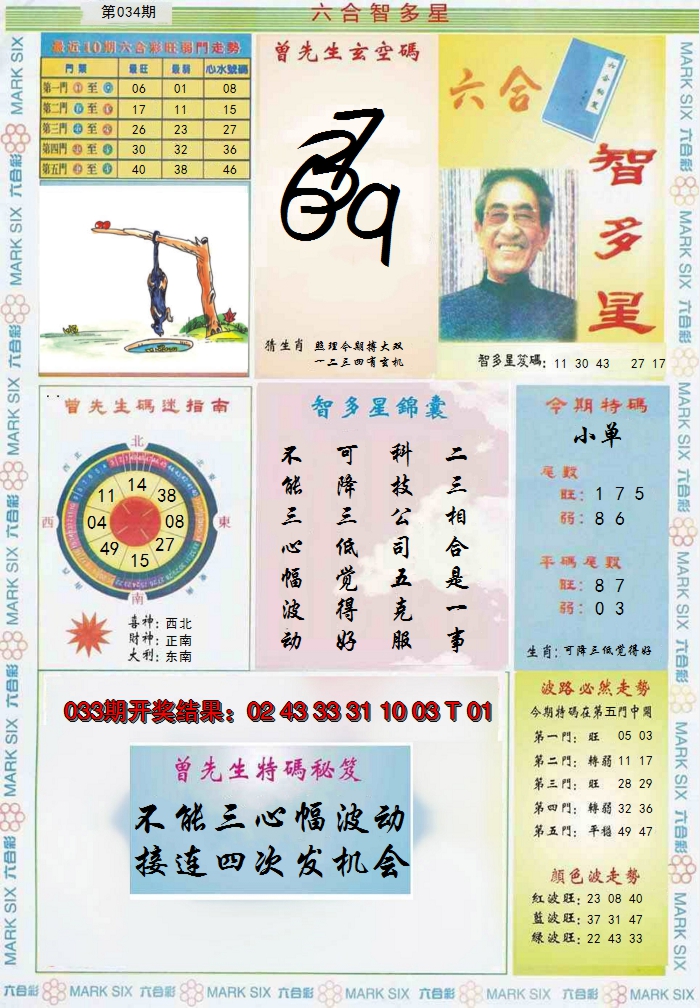 第034期
六合智多星
最近10期六合彩旺弱門走勢
門類 最旺 最弱 心水號碼
第一門 至 06 01 08
第二門 至 17 11 15
第三門 至 26 23 27
第四門 至 30 32 36
第五門 至 40 38 46
曾先生玄空碼
猜生肖 照理今期搏大双
一二三四有玄机
六合
智多星
智多星笈碼: 11 30 43 27 17
曾先生碼迷指南
北
西 東
南
14
11 38
04 08
49 27
15
喜神: 西北
財神: 正南
大利: 东南
智多星錦囊
二三相合是一事
科技公司五克服
可降三低觉得好
不能三心幅波动
今期特碼
小单
尾數
旺: 1 7 5
弱: 8 6
平碼尾數
旺: 8 7
弱: 0 3
生肖: 可降三低觉得好
033期开奖结果: 02 43 33 31 10 03 T 01
曾先生特碼秘笈
不能三心幅波动
接连四次发机会
波路必然走勢
今期特碼在第五門中開
第一門: 旺 05 03
第二門: 轉弱 11 17
第三門: 旺 28 29
第四門: 轉弱 32 36
第五門: 平穩 49 47
顏色波走勢
紅波旺: 23 08 40
藍波旺: 37 31 47
綠波旺: 22 43 33
MARK SIX 六合彩